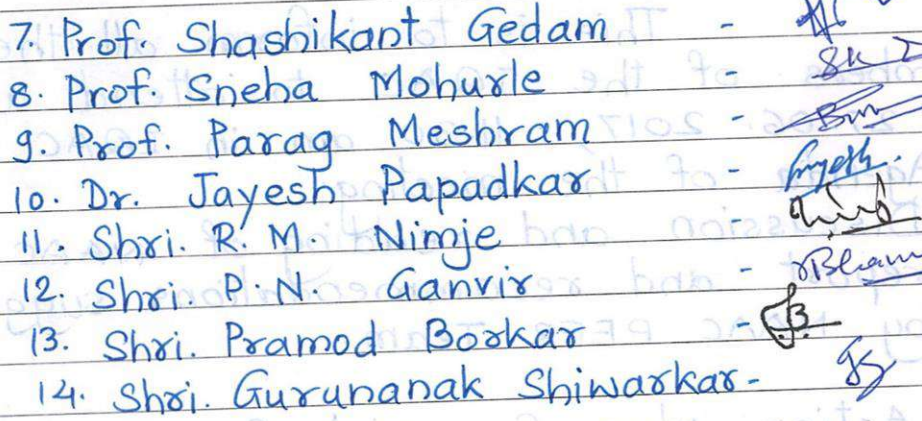 7. Prof. Shashikant Gedam -
8. Prof. Sneha Mohurle -
9. Prof. Parag Meshram -
10. Dr. Jayesh Papadkar -
11. Shri. R. M. Nimje -
12. Shri. P. N. Ganvir -
13. Shri. Pramod Borkar -
14. Shri. Gurunanak Shiwarkar -